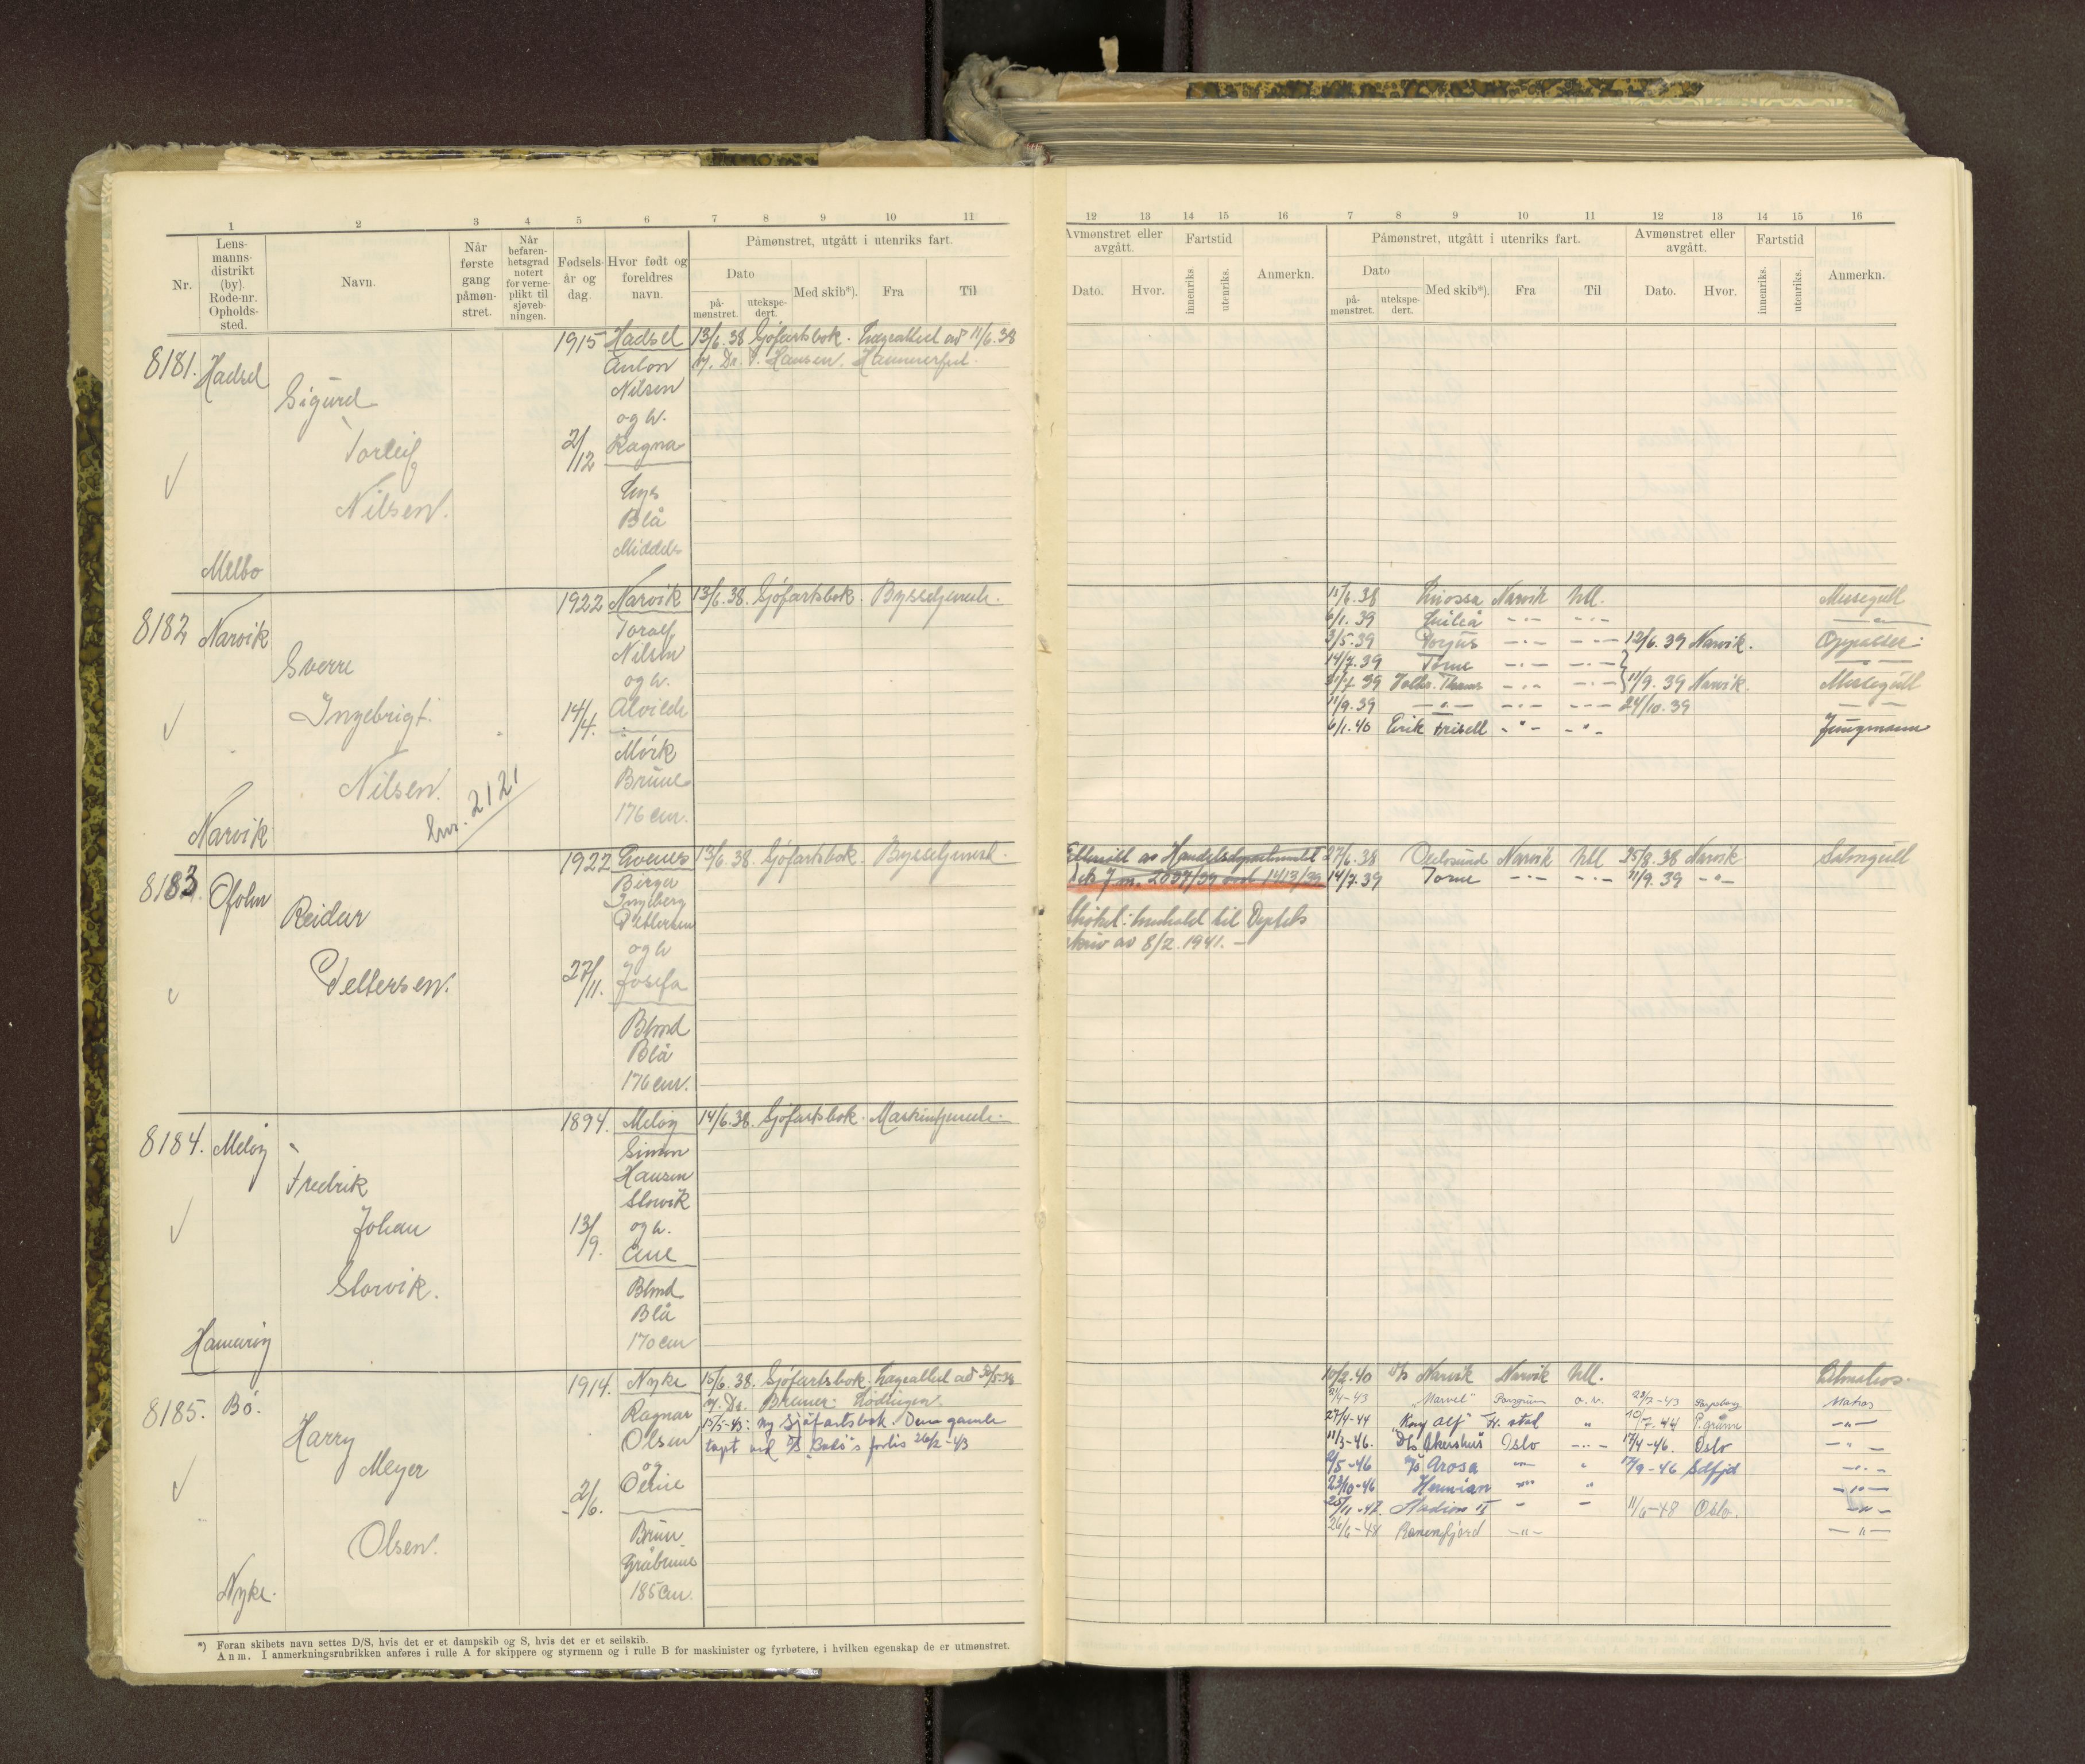 1 2 3 4 5 6 7 8 9 10 11
Nr. Lens-manns-distrikt (by). Rode-nr. Opholds-sted. Navn. Når første gang påmøn-stret. Når befaren-hetsgrad notert for verne-plikt til sjøveb-ningen. Fødsels-år og dag. Hvor født og foreldres navn. Påmønstret, utgått i utenriks fart.
Dato
på-mønstret. utekspe-dert. Med skib*). Fra Til
8181. Hadsel
Sigurd
Torleif
Nilsen.
Melbo
1915
2/12
Hadsel
Anton
Nilsen
og h.
Ragna
Lys
Blå
Middels
13/6.38 Sjøfartsbok. Lægeattest av 11/6.38
v/ Dr. Hansen. Hammerfest.
8182 Narvik
Sverre
Ingebrigt
Nilsen.
Narvik
lnr. 2121
1922
14/4.
Narvik
Toralf
Nilsen
og h.
Alvilde
Mørk
Brune
176 cm.
13/6.38. Sjøfartsbok. Byssetjeneste.
8183. Ofoten
Reidar
Pettersen.
1922
27/11.
Evenes
Birger
Ingeberg
Pettersen
og h
Josefa
Blond
Blå
176 cm.
13/6.38. Sjøfartsbok. Byssetjeneste.
8184. Meløy
Fredrik
Johan
Storvik.
Hamarøy
1894.
13/9.
Meløy
Simon
Hansen
Storvik
og h.
Ane
Blond
Blå
170 cm
14/6.38. Sjøfartsbok. Maskintjeneste.
8185. Bø.
Harry
Meyer
Olsen.
Nyke.
1914.
2/6.
Nyke
Ragnar
Olsen
og
Brun.
Gråbrune
185 cm.
15/6.38. Sjøfartsbok. Lægeattest av 30/5.38
v/ Dr. Bremer. Lødingen.
15/5-43: ny sjøfartsbok. Den gamle
tapt ved D/S "Bodø"s forlis 26/2-43
*) Foran skibets navn settes D/S, hvis det er et dampskib og S, hvis det er et seilskib.
Anm. I anmerkningsrubrikken anføres i rulle A for skippere og styrmenn og i rulle B for maskinister og fyrbøtere, i hvilken egenskap de er utmønstret.
12 13 14 15 16 7 8 9 10 11 12 13 14 15 16
Avmønstret eller avgått. Fartstid Påmønstret, utgått i utenriks fart. Avmønstret eller avgått. Fartstid
Dato. Hvor. innenriks. utenriks. Anmerkn. Dato på-mønstret. utekspe-dert. Med skib*). Fra Til Dato. Hvor. innenriks. utenriks. Anmerkn.
15/6.38 Knossa Narvik Utl. Messegutt
6/1.39 -"- -"- -"-
3/5.39 Torjus -"- -"- 12/6.39 Narvik.
14/7.39 Torne -"- -"- -"-
31/7 39 Hallv. Thams -"- -"- 11/9.39 Narvik. Messegutt
11/9.39 -"- -"- -"- 24/10.39 -"-
6/1.40 Erik Frisell -"- -"- Jungmann
av Handelsdepartementet 27/6.38 Oxelosund Narvik Utl 25/8.38 Narvik Salongutt
2037/39 1413/39 14/7.39 Torne -"- -"- 11/9.39 -"-
henhold til Deptets
skriv av 8/2.1941.
10/2.40 D/s Narvik Narvik Utl.
21/4-43 "Marvel" Porsgrunn o.v. 23/7-43 Sarpsborg Matros
27/4-44 "Kong Alf" Fr.stad " 10/7.44 P.grunn -"-
11/3-46. D/s Akershus Oslo -"- 17/4-46. Oslo -"-
2/5-46 m/s Arosa -"- " 17/9-46 Sdfjd -"-
23/10-46 Herivian -"- " -"-
25/11-47 II - - 11/6-48 Oslo. -"-
26/6-48 Ranenfjord -"- -"-